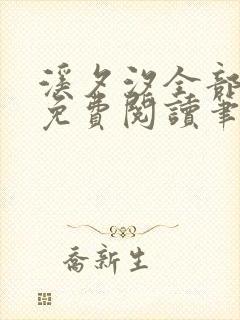 溪夕汐全部
免費閱讀筆
喬新生